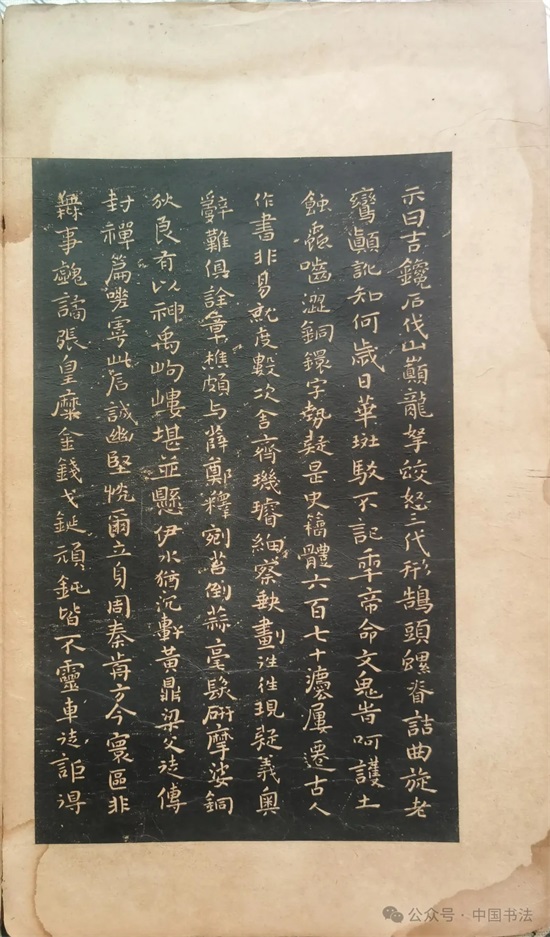 示曰古鑱石伐山巔龍拏蛟怒三代形鵠頭螺脊詰曲旋老
鸞顚訛知何歲日華斑駁不記年帝命文鬼昔呵護土
蝕齧澀銅鐶字勢疑是史籒體六百七十屢遷古人
作書非易就度數次舍齊璣璿細察畫往往現疑義奧
辭難俱詮章樵頗与薛鄭釋剜苔倒薤毫髮硏摩娑銅
狄良有以神禹岣嶁堪並懸伊水猶沉黃鼎梁父徒傳
封禪篇嘐寧此信誠幽堅恍爾立身周秦肯方今寰區非
事譎張皇糜金錢戈鋋頑鈍皆不靈車徒詎得
公众号·中国书法